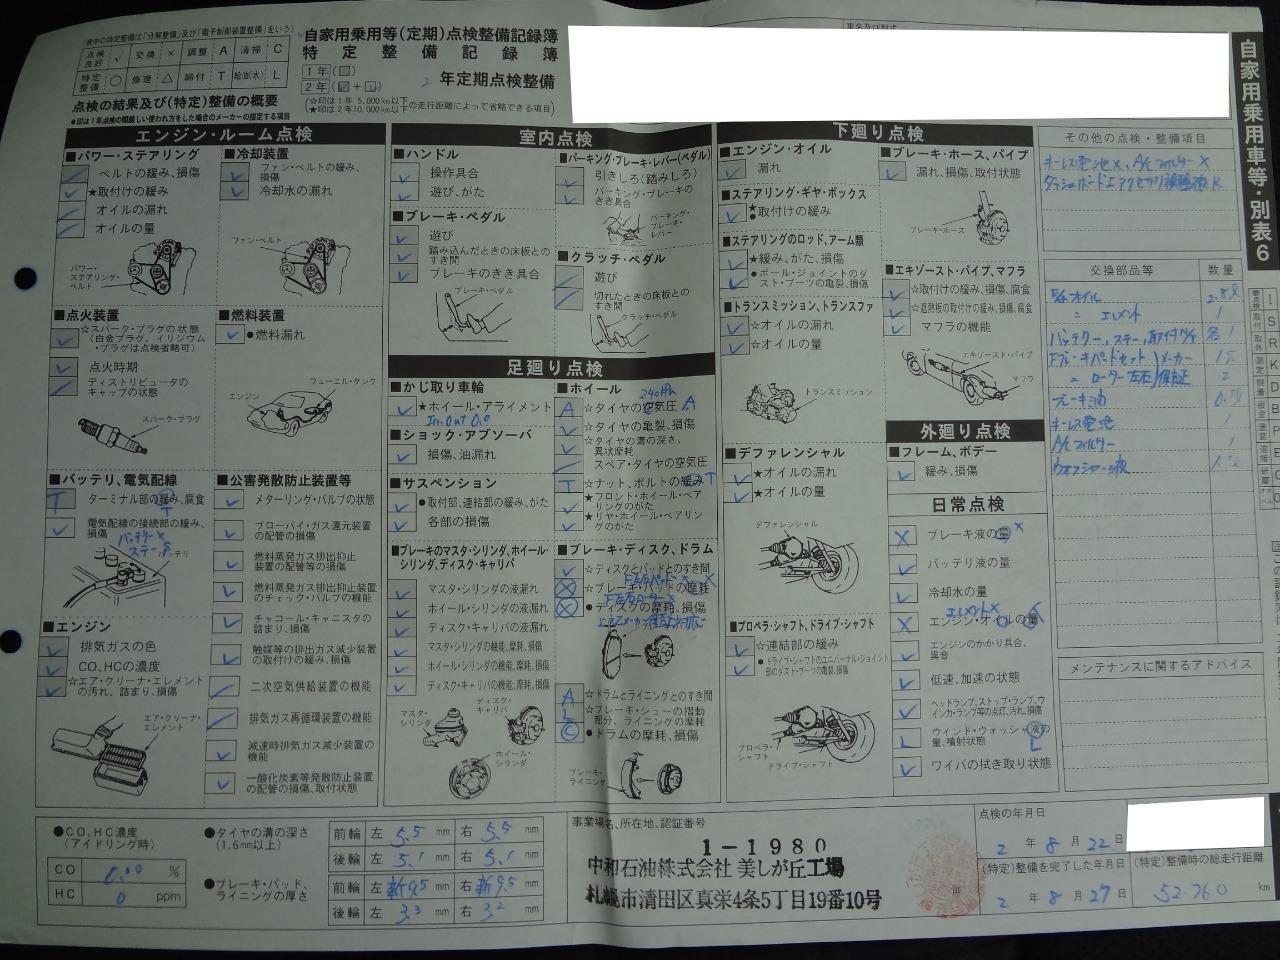 (表中の特定整備は「分解整備」及び「電子制御装置整備」をいう)
点検良好 ✓ 交換 × 調整 A 清掃 C
特定整備 ○ 修理 △ 締付 T 給油(水) L
点検の結果及び(特定)整備の概要
●印は1年点検の際厳しい使われ方をした場合のメーカーの指定する項目
自家用乗用等(定期)点検整備記録簿
特定整備記録簿
1年(□)
2年(□+□)
2年定期点検整備
(☆印は1年 5,000km以下
★印は2年10,000km以下の走行距離によって省略できる項目)
車名及び型式
自家用乗用車等・別表6
エンジン・ルーム点検
■パワー・ステアリング
ベルトの緩み、損傷
★取付けの緩み
オイルの漏れ
オイルの量
パワー・ステアリング・ベルト
■冷却装置
ファン・ベルトの緩み、損傷
冷却水の漏れ
ファン・ベルト
■点火装置
☆スパーク・プラグの状態
(白金プラグ、イリジウム・プラグは点検省略可)
点火時期
ディストリビュータのキャップの状態
スパーク・プラグ
■燃料装置
●燃料漏れ
フューエル・タンク
エンジン
■バッテリ、電気配線
T ターミナル部の緩み、腐食
T
電気配線の接続部の緩み、損傷
バッテリー×
バッテリ
■エンジン
排気ガスの色
CO、HCの濃度
☆エア・クリーナ・エレメントの汚れ、詰まり、損傷
エア・クリーナ・エレメント
■公害発散防止装置等
メターリング・バルブの状態
ブローバイ・ガス還元装置の配管の損傷
燃料蒸発ガス排出抑止装置の配管等の損傷
燃料蒸発ガス排出抑止装置のチェック・バルブの機能
チャコール・キャニスタの詰まり、損傷
触媒等の排出ガス減少装置の取付けの緩み、損傷
二次空気供給装置の機能
排気ガス再循環装置の機能
減速時排気ガス減少装置の機能
一酸化炭素等発散防止装置の配管の損傷、取付状態
室内点検
■ハンドル
操作具合
遊び、がた
■ブレーキ・ペダル
遊び
踏み込んだときの床板とのすき間
ブレーキのきき具合
ブレーキ・ペダル
■パーキング・ブレーキ・レバー(ペダル)
引きしろ(踏みしろ)
パーキング・ブレーキのきき具合
パーキング・ブレーキ・レバー
■クラッチ・ペダル
遊び
切れたときの床板とのすき間
クラッチ・ペダル
足廻り点検
■かじ取り車輪
★ホイール・アライメント
In.Out 0.0
■ショック・アブソーバ
損傷、油漏れ
■サスペンション
●取付部、連結部の緩み、がた
各部の損傷
■ブレーキのマスタ・シリンダ、ホイール・シリンダ、ディスク・キャリパ
マスタ・シリンダの液漏れ
ホイール・シリンダの液漏れ
ディスク・キャリパの液漏れ
マスタ・シリンダの機能、摩耗、損傷
ホイール・シリンダの機能、摩耗、損傷
ディスク・キャリパの機能、摩耗、損傷
マスタ・シリンダ
ディスク・キャリパ
ホイール・シリンダ
■ホイール
240kPa
A ☆タイヤの空気圧 A
☆タイヤの亀裂、損傷
☆タイヤの溝の深さ、異状摩耗
スペア・タイヤの空気圧
T ☆ナット、ボルトの緩み T
★フロント・ホイール・ベアリングのがた
★リヤ・ホイール・ベアリングのがた
■ブレーキ・ディスク、ドラム
☆ディスクとパッドとのすき間
☆ブレーキ・パッドの摩耗 ×
●ディスクの摩耗、損傷
A ☆ドラムとライニングとのすき間
L ☆ブレーキ・シューの摺動部分、ライニングの摩耗
C ●ドラムの摩耗、損傷
ブレーキ・ライニング
下廻り点検
■エンジン・オイル
漏れ
■ステアリング・ギヤ・ボックス
★●取付けの緩み
■ステアリングのロッド、アーム類
★緩み、がた、損傷
●ボール・ジョイントのダスト・ブーツの亀裂、損傷
■トランスミッション、トランスファ
☆オイルの漏れ
☆オイルの量
トランスミッション
■デファレンシャル
★オイルの漏れ
★オイルの量
デファレンシャル
■プロペラ・シャフト、ドライブ・シャフト
☆連結部の緩み
●ドライブ・シャフトのユニバーサル・ジョイント部のダスト・ブーツの亀裂、損傷
プロペラ・シャフト
ドライブ・シャフト
■ブレーキ・ホース、パイプ
漏れ、損傷、取付状態
ブレーキ・ホース
■エキゾースト・パイプ、マフラ
☆取付けの緩み、損傷、腐食
☆遮熱板の取付けの緩み、損傷、腐食
マフラの機能
エキゾースト・パイプ
マフラ
外廻り点検
■フレーム、ボデー
緩み、損傷
日常点検
× ブレーキ液の量 ×
バッテリ液の量
冷却水の量
エレメント×
× エンジン・オイルの量
エンジンのかかり具合、異音
低速、加速の状態
ヘッドランプ、ストップ・ランプ、ウインカ・ランプ等の点灯、汚れ、損傷
L ウインド・ウォッシャ液の量、噴射状態 L
ワイパの拭き取り状態
その他の点検・整備項目
キーレス電池×、A/Cフィルター×
交換部品等 数量
オイル 2.8ℓ
〃 エレメント 1
バッテリー、ステー、取付
Fブレーキパッドセット メーカー
〃 ローター左右 保証 2
ブレーキ油
キーレス電池 1
A/Cフィルター 1
ウオッシャー液
メンテナンスに関するアドバイス
●CO、HC濃度
(アイドリング時)
CO 0.00 %
HC 0 ppm
●タイヤの溝の深さ
(1.6mm以上)
前輪 左 5.5 mm 右 5.5 mm
後輪 左 5.1 mm 右 5.1 mm
●ブレーキ・パッド、ライニングの厚さ
前輪 左 新9.5 mm 右 新9.5 mm
後輪 左 3.3 mm 右 3.2 mm
事業場名、所在地、認証番号
1-1980
中和石油株式会社 美しが丘工場
札幌市清田区真栄4条5丁目19番10号
点検の年月日
2年8月22日
(特定)整備を完了した年月日
2年8月27日
(特定)整備時の総走行距離
52,760 km